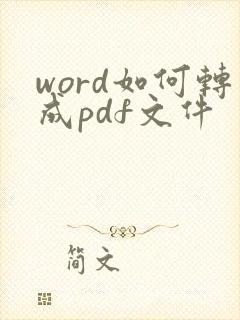 word如何轉
成pdf文件
简文